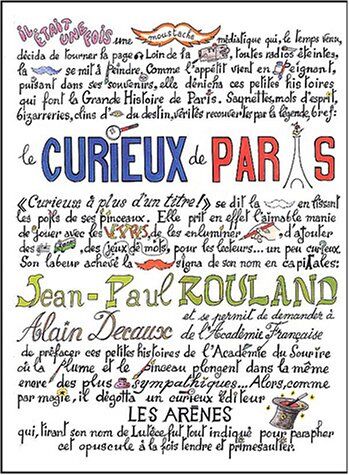 IL ÉTAIT UNE FOIS une moustache médiatique qui, le temps venu,
décida de tourner la page. Loin de la , toutes radios éteintes,
la se mit à peindre. Comme l'appétit vient en peignant,
puisant dans ses souvenirs, elle dénicha ces petites histoires
qui font la Grande Histoire de Paris. Saynettes, mots d'esprit,
bizarreries, clins d' du destin, vérités recouvertes par la légende, bref:
le CURIEUX de PARIS
«Curieux à plus d'un titre!» se dit la en lissant
les poils de ses pinceaux. Elle prit en effet l'aimable manie
de jouer avec les , de les enluminer, d'ajouter
des et , des jeux de mots, pour les lecteurs... un peu curieux.
Son labeur achevé la signa de son nom en capitales:
Jean-Paul ROULAND
Alain Decaux et se permit de demander à
de l'Académie Française
de préfacer ces petites histoires de l'Académie du Sourire
où la plume et le pinceau plongent dans la même
encre des plus sympathiques... Alors, comme
par magie, il dégotta un curieux éditeur
LES ARÈNES
qui, tirant son nom de Lutèce fut tout indiqué pour parapher
cet opuscule à la fois tendre et primesautier.